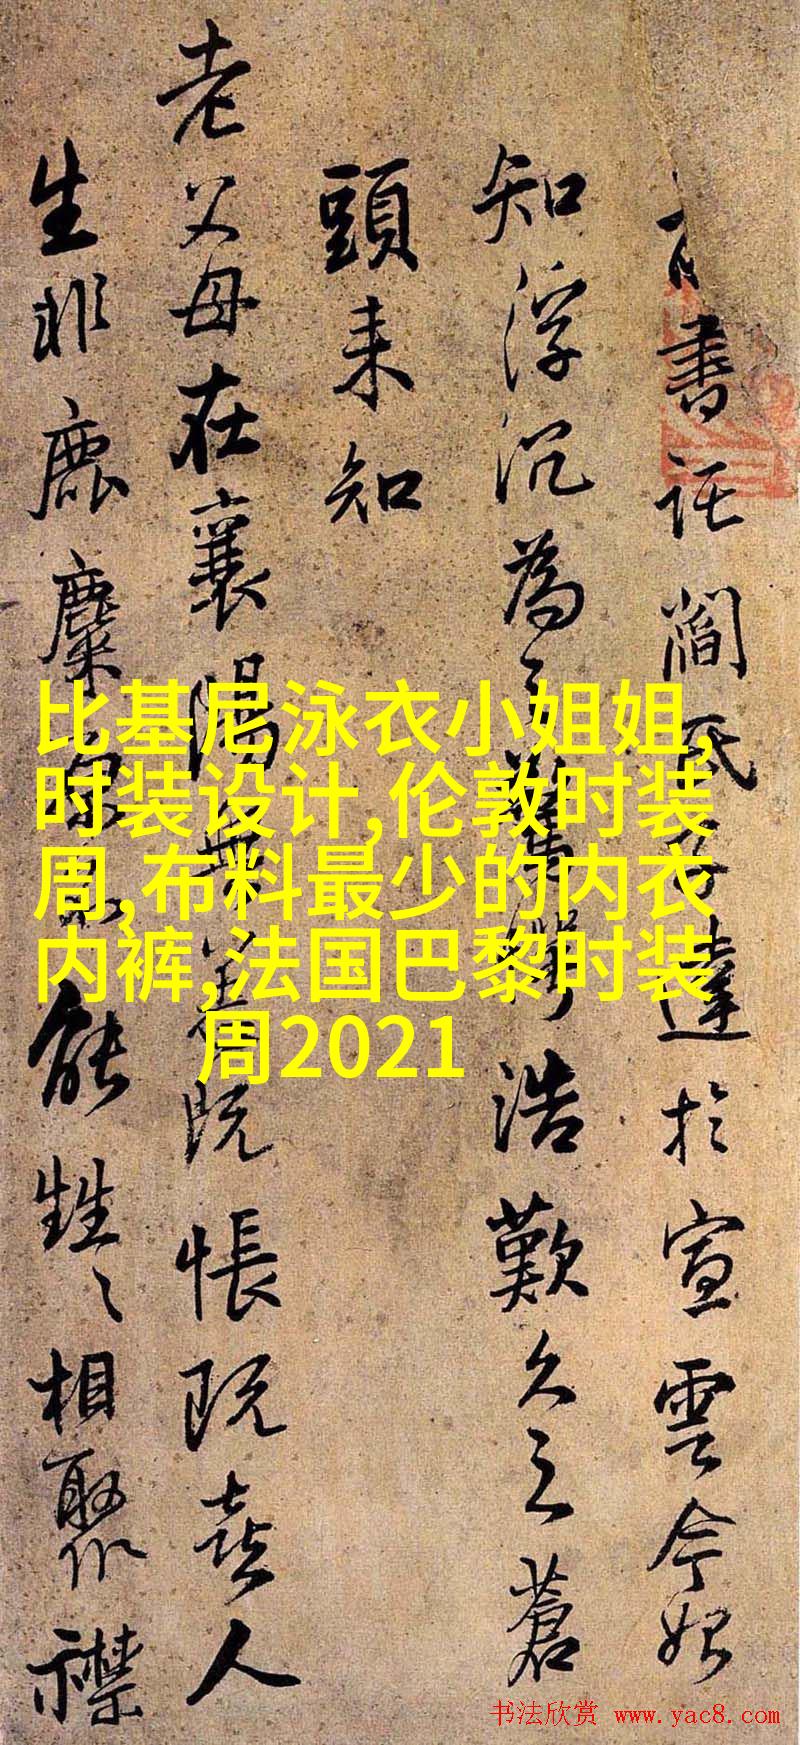 書託閻氏子達於宣雲今始
知浮沉為浩歎久之蒼
頭未知
老父母在襄陽無恙既悵既喜人
生非鹿麋能甡〻相聚襟
比基尼泳衣小姐姐,
时装设计,伦敦时装
周,布料最少的内衣
内裤,法国巴黎时装
周2021
书法欣赏 www.yac8.com